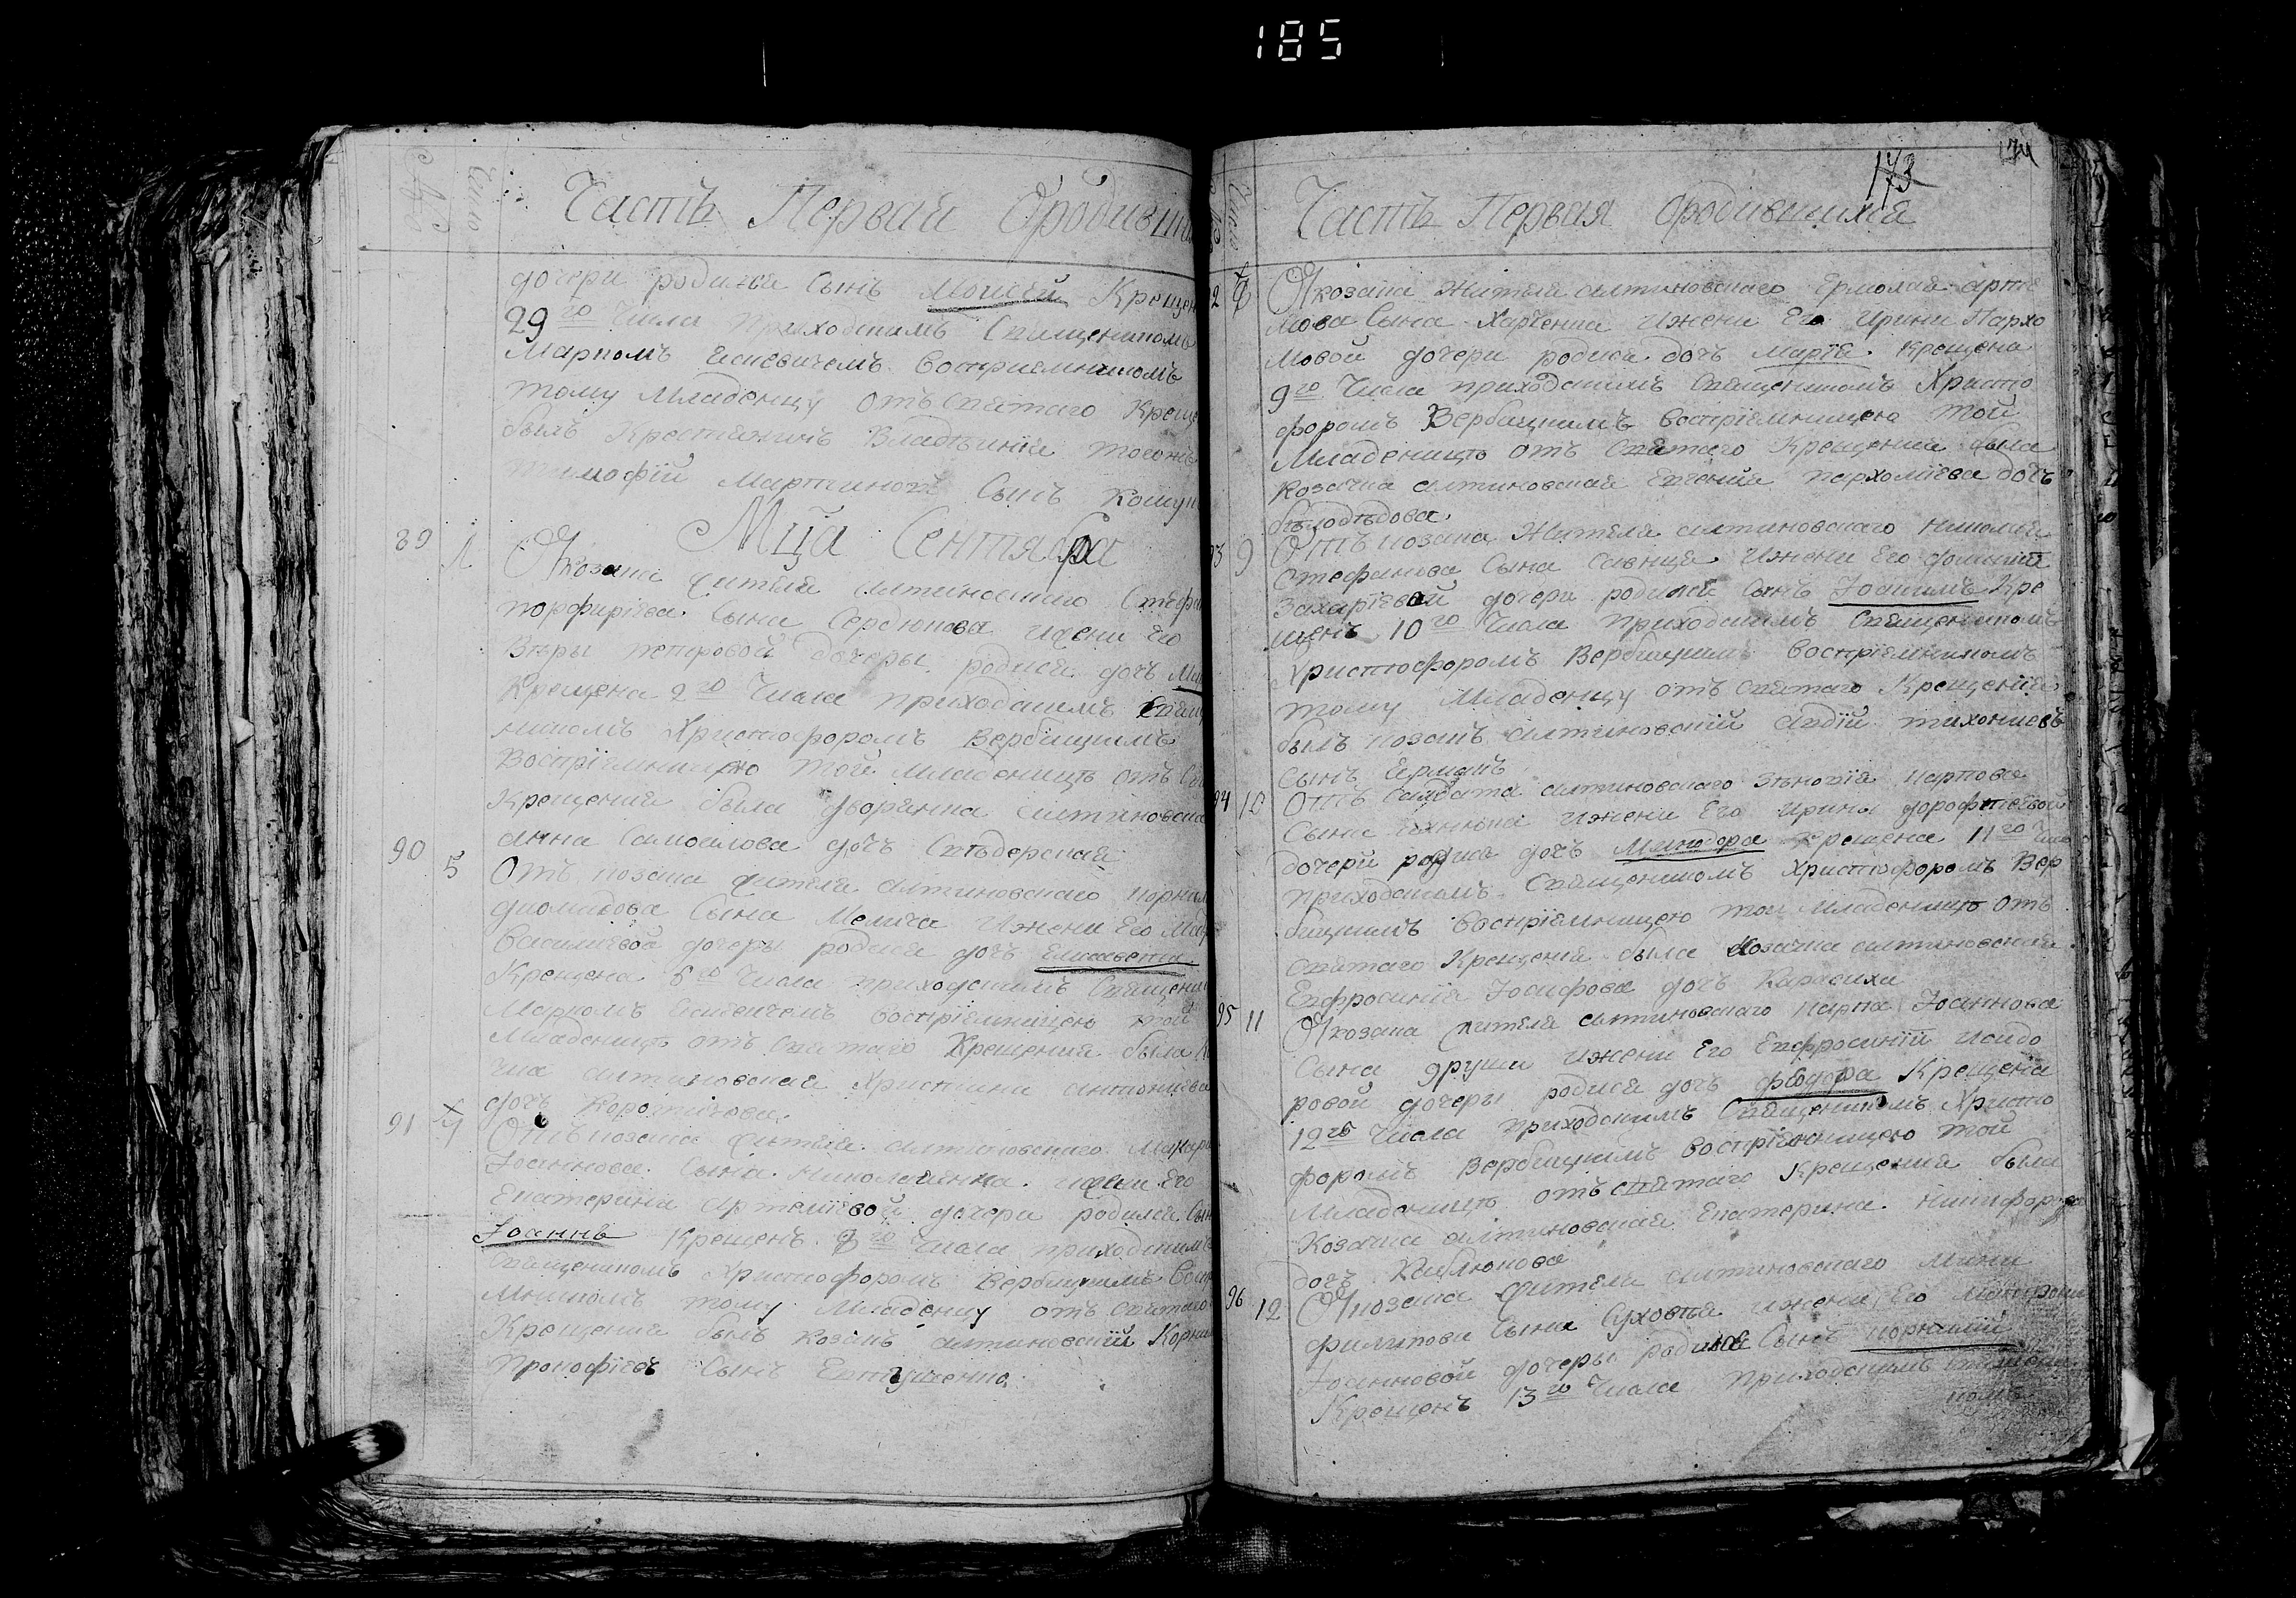 185
Часть Первая Ородивши
Число
дочери родился Сынъ Моисей Крещен
29го Числа приходскимъ Священикомъ
Маркомъ воспріемникомъ
тому Младенцу отъ святаго Креще
былъ Крестянинъ Владѣнія тогожъ
тимофій Мартиновъ Сынъ
Мца Сентября
89 1 Отъ козака жителя алтиновскаго Стефа
порфиріева Сына Сердюкова ижени Его
Вѣры петровой дочеры родися дочъ
Крещена 2го Числа приходскимъ Свяще
никомъ Христофоромъ Вербицкимъ
Воспріемницею той Младеницѣ отъ Свя
Крещения была дворянка алтиновская
анна Самоилова дочъ
90 5 Отъ козака жителя алтиновскаго корнил
диомидова Сына ижени Его
Василиевой дочеры родися дочъ Елисавета
Крещена 5го Числа приходскимъ Священи
Маркомъ воспріемницею той
Младеницѣ отъ святаго Крещения была
чка алтиновская Христина антониева
дочъ
91 7 Отъ козака жителя алтиновскаго Макар
Іоаннова Сына николаенка ижени Его
Екатерини артемиевой дочери родился Сын
Іоаннъ Крещенъ 8го Числа приходскимъ
Священикомъ Христофоромъ Вербицкимъ Восп
Мникомъ тому Младенцу отъ святаго
Крещения былъ козакъ алтиновскій Корни
Прокофіевъ Сынъ Евтушенко
173
174
Часть Первая Ородившихся
92 Отъ козака Жителя алтиновскаго Ермолая арте
мова Сына Харченка ижени Его Ирини Пархо
мовой дочери родися дочъ Марія Крещена
9го Числа приходскимъ Священикомъ Христо
форомъ Вербицкимъ воспріемницею той
Младеницѣ отъ святаго Крещения была
Козачка алтиновская Евгения пархоміева дочъ
бѣлодѣдова
93 9 Отъ козака Жителя алтиновскаго николая
Стефанова Сына Савица ижени Его
Захаріевой дочери родился Сынъ Іоакимъ Кре
щенъ 10го Числа приходскимъ Священикомъ
Христофоромъ Вербицкимъ воспріемникомъ
тому Младенцу отъ святаго Крещения
былъ козакъ алтиновскій авдій тихониевъ
Сынъ Ермакъ
94 10 Отъ Салдата алтиновскаго Зѣновія карпова
Сына ижени Его Ирины дорофѣевой
дочери родися дочъ Минодора Крещена 11го Числа
приходскомъ Священикомъ Христофоромъ Вер
бицкимъ воспріемницею той Младеницѣ отъ
святаго Крещения была Козачка алтиновская
Евфросинія Іосифова дочъ Карасиха
95 11 Отъ козака жителя алтиновскаго карпа Іоаннова
Сына друци ижени Его Евфросиніи Исидо
ровой дочеры родися дочъ феодора Крещена
12го Числа приходскимъ Священикомъ Христо
форомъ Вербицкимъ воспріемницею той
Младеницѣ отъ святаго Крещения была
Козачка алтиновская Екатерина никифорова
дочъ Каблюкова
96 12 Отъ козака жителя алтиновскаго Мини
филипова Сына Суховѣя ижени Его
Іоанновой дочеры родился Сынъ корнилій
Крещенъ 13го Числа приходскимъ Священи
комъ